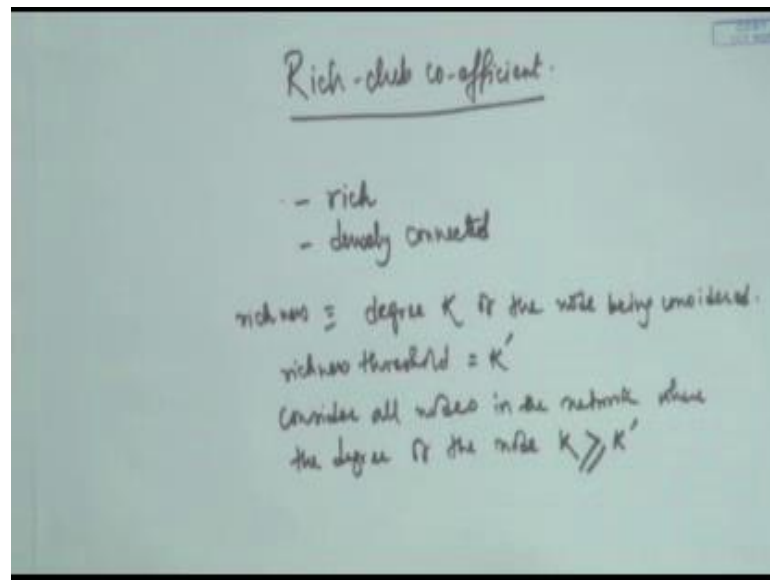 Rich-club co-efficient.
- rich
- densely connected
richness = degree K of the node being considered.
richness threshold = K'
consider all nodes in the network where
the degree of the node K ≥ K'